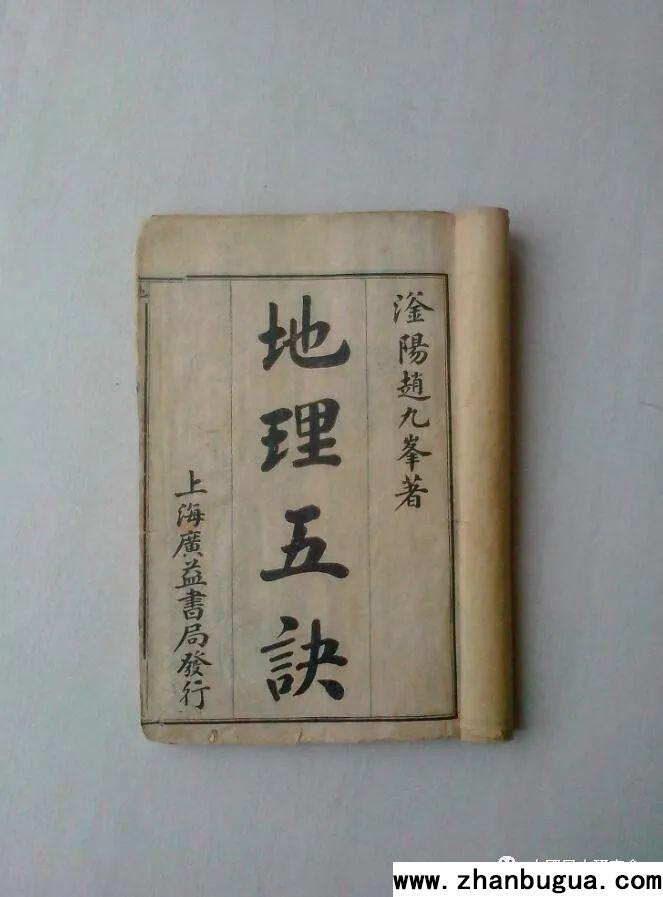 滏陽趙九峯著
地理五訣
上海廣益書局發行
www.zhanbugua.com